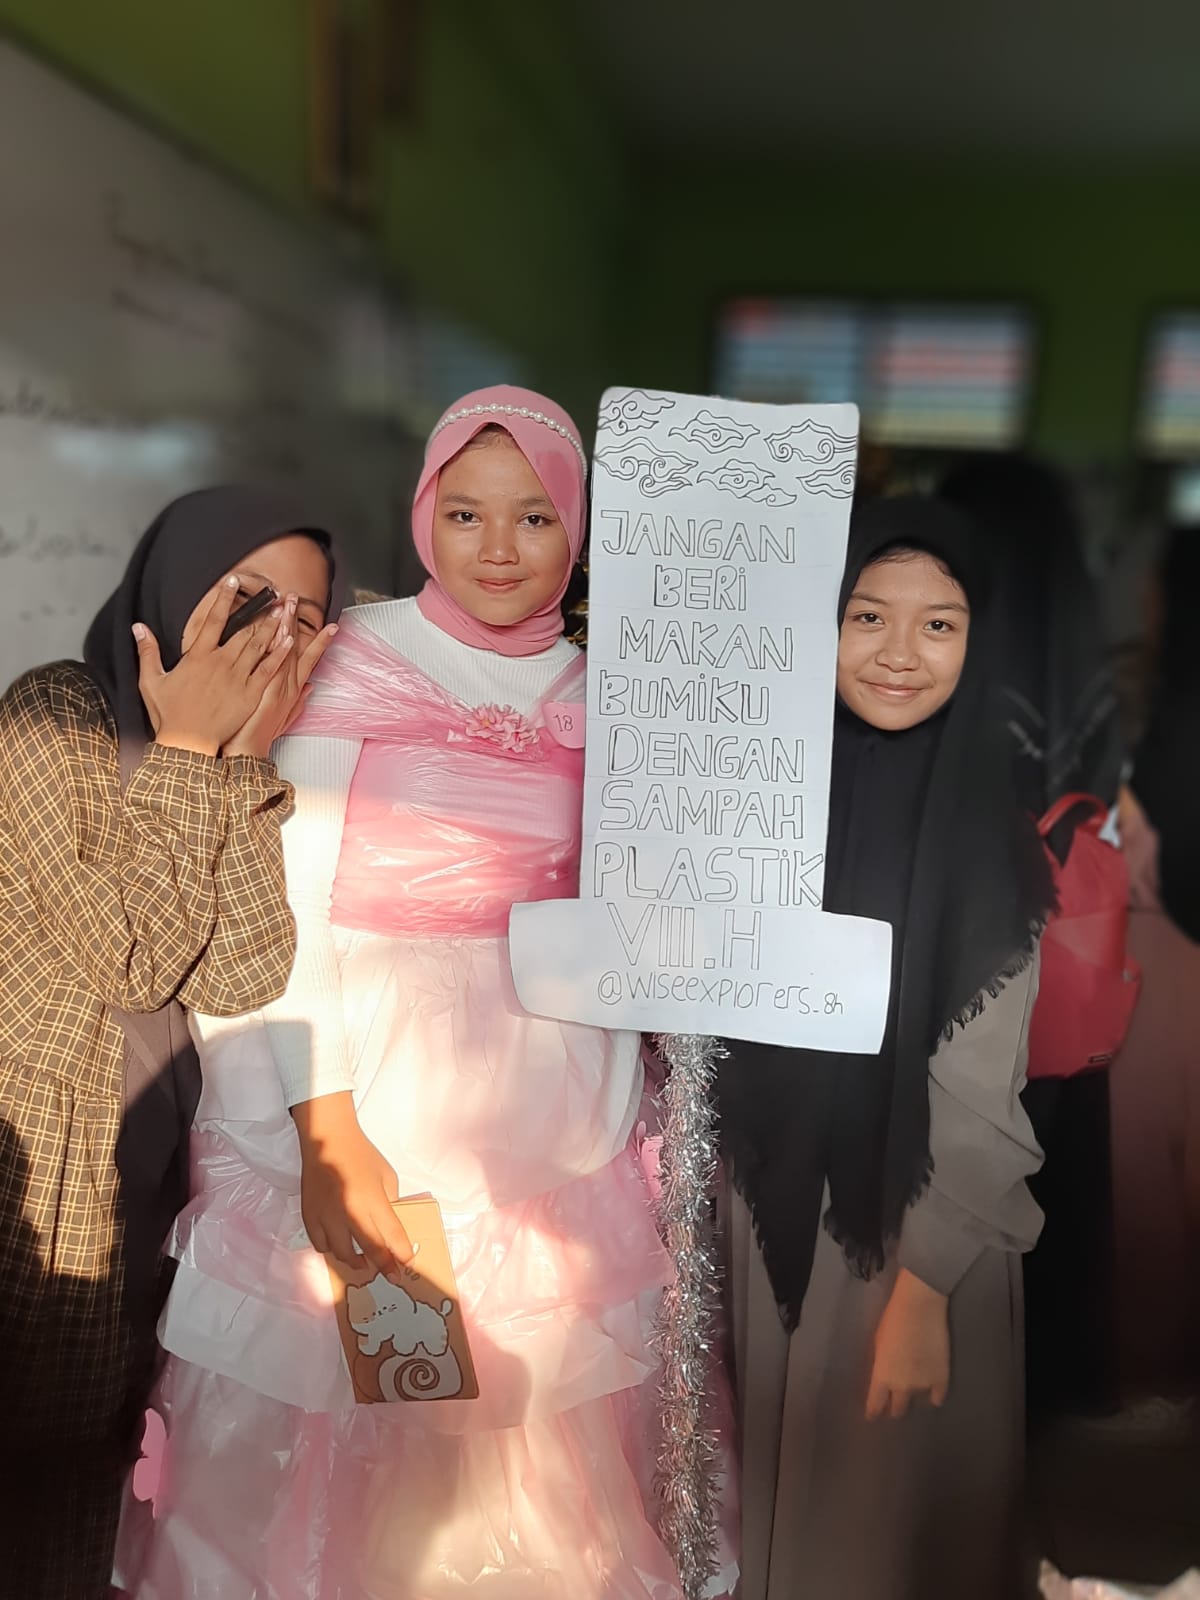 JANGAN
BERI
MAKAN
BUMIKU
DENGAN
SAMPAH
PLASTIK
VIII.H
@wiseexplorers_8h
18